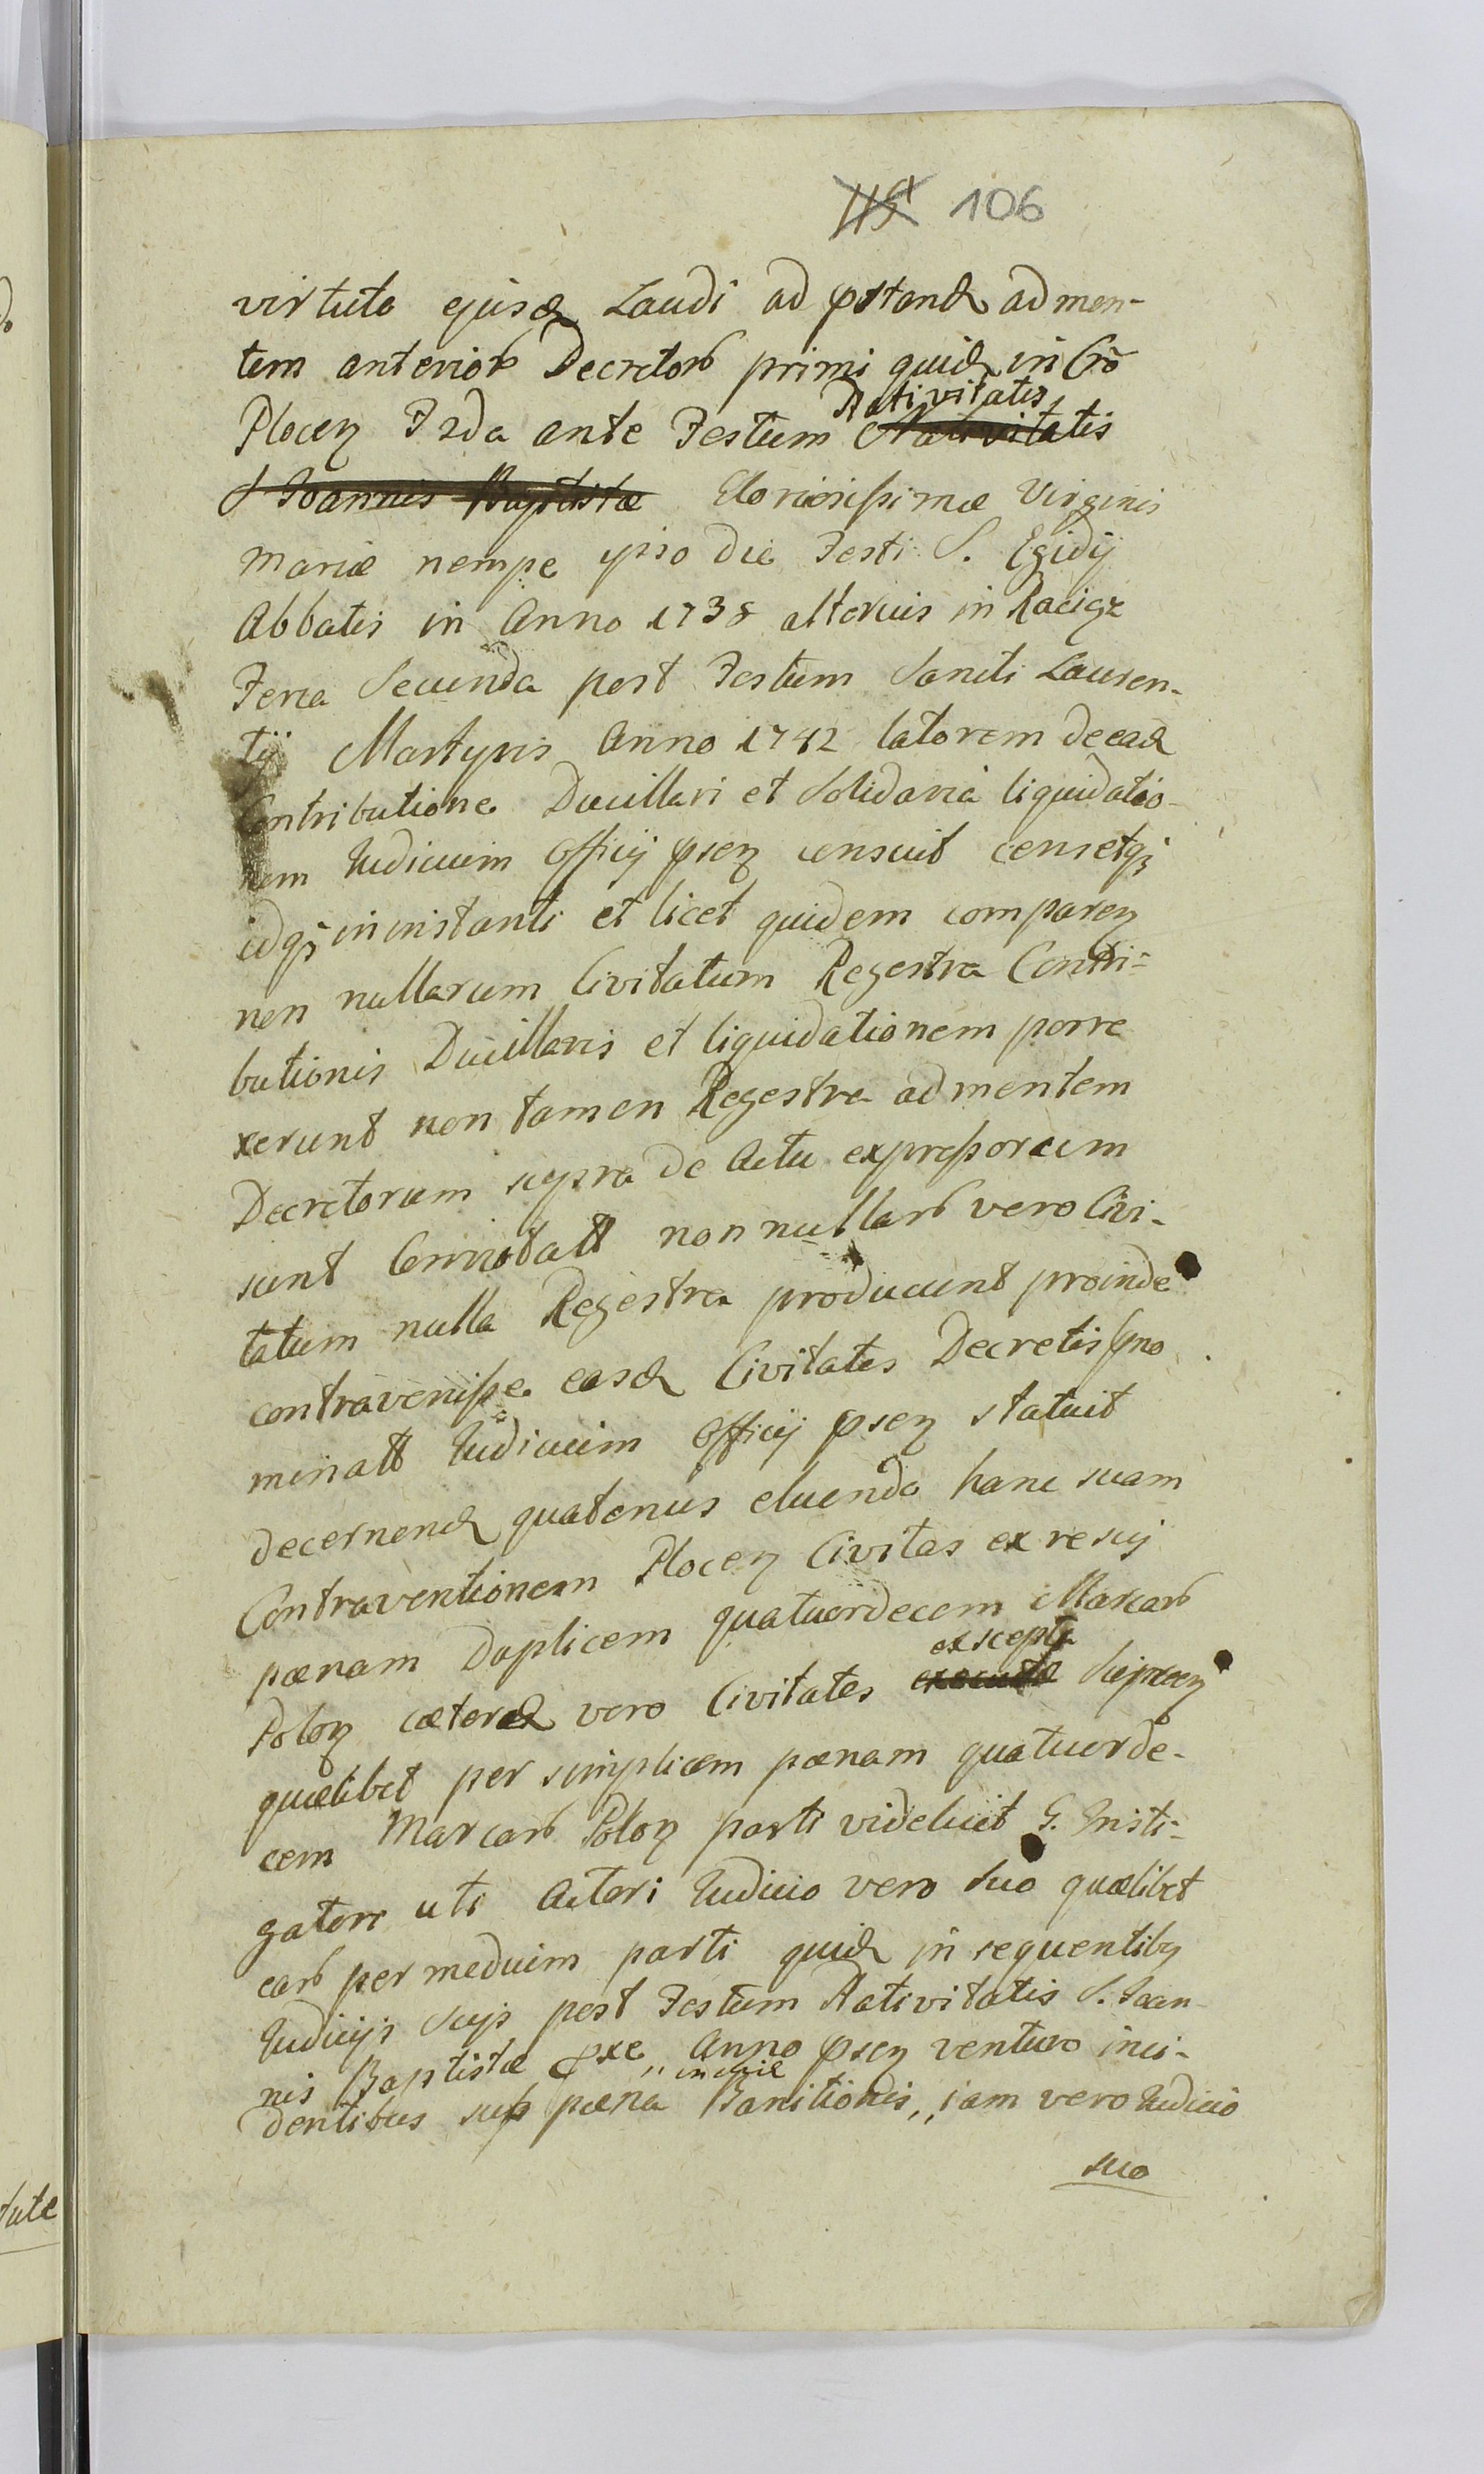 115 106
virtute ejusd Laudi ad pstand ad men-
tem anterior Decretor primi quid in Cro
Plocen F 2da ante Festum Nativitatis Nativitatis
S Joannis Baptistæ Gloriosissimæ Virginis
Mariæ nempe ipso die Festi S. Egidij
Abbatis in Anno 1738 alterius in Raciąz
Feria Secunda post Festum Sancti Lauren-
tij Martyris Anno 1742 latorem de ead
Contributione Ducillari et Solidaria liquidatio-
nem Iudicium Officij psen censuit censetq;
idq; in instanti et licet quidem comparen
non nullarum Civitatum Regestra Contri-
butionis Ducillaris et liquidationem porre
xerunt non tamen Regestra ad mentem
Decretorum supra de Actu expressorum
sunt Connotatt non nullar vero Civi-
tatum nulla Regestra producunt proinde
contravenisse easd Civitates Decretis pno
minatt Iudicium Officij psen statuit
decernend quatenus eluendo hanc suam
Contraventionem Plocen Civitas ex re suj
pænam Duplicem quatuordecem Marcar
Polon cætered vero Civitates excepta
quælibet per simplicem pænam quatuorde-
cem Marcar Polon parti videlicet G. Insti-
gatore uti Actori Iudicio vero suo quælibet
ear per medium parti quid in sequentibq
Iudicijs suis post Festum Nativitatis S. Joan-
nis Baptistæ pxe Anno psen venturo inci-
dentibus sup pæna Banitionis „ iam vero Iudicio
suo